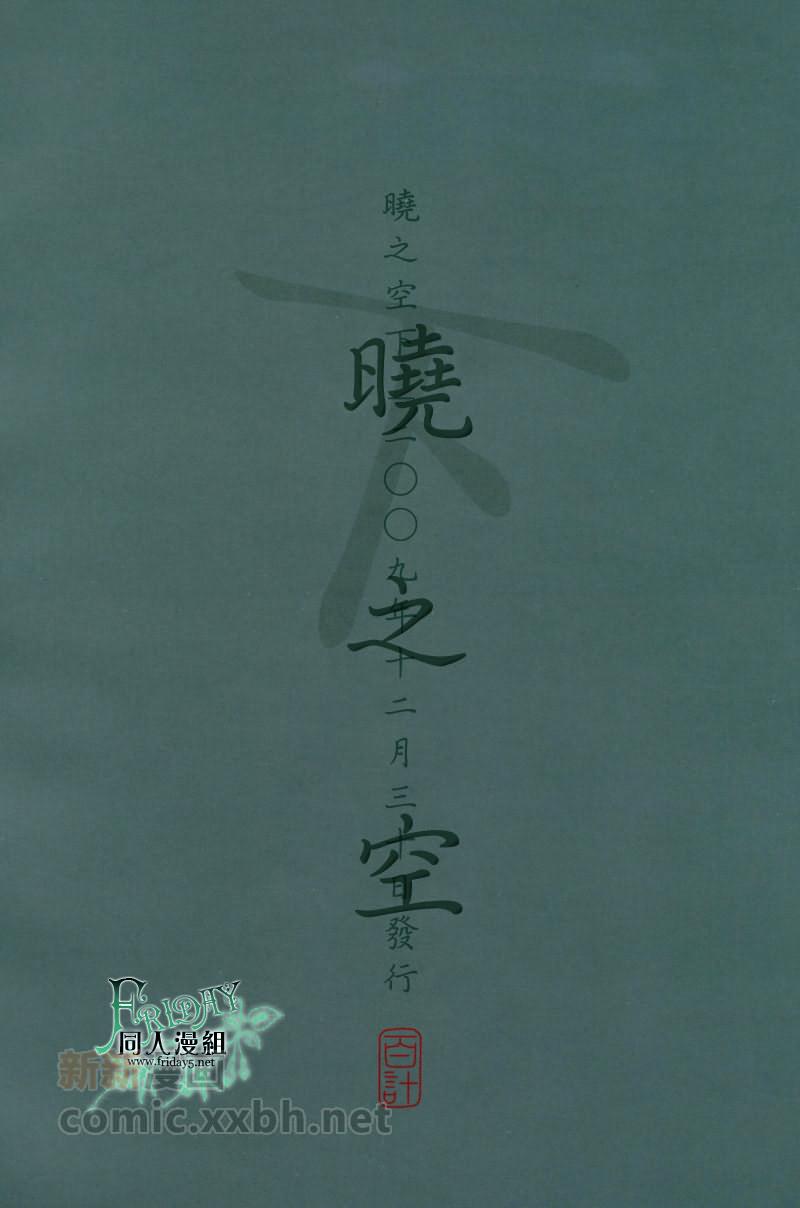 曉之空下
二〇〇九年十二月三十日發行
曉之空
下
百計
FRIDAY
同人漫組
www.friday5.net
新新漫画
comic.xxbh.net